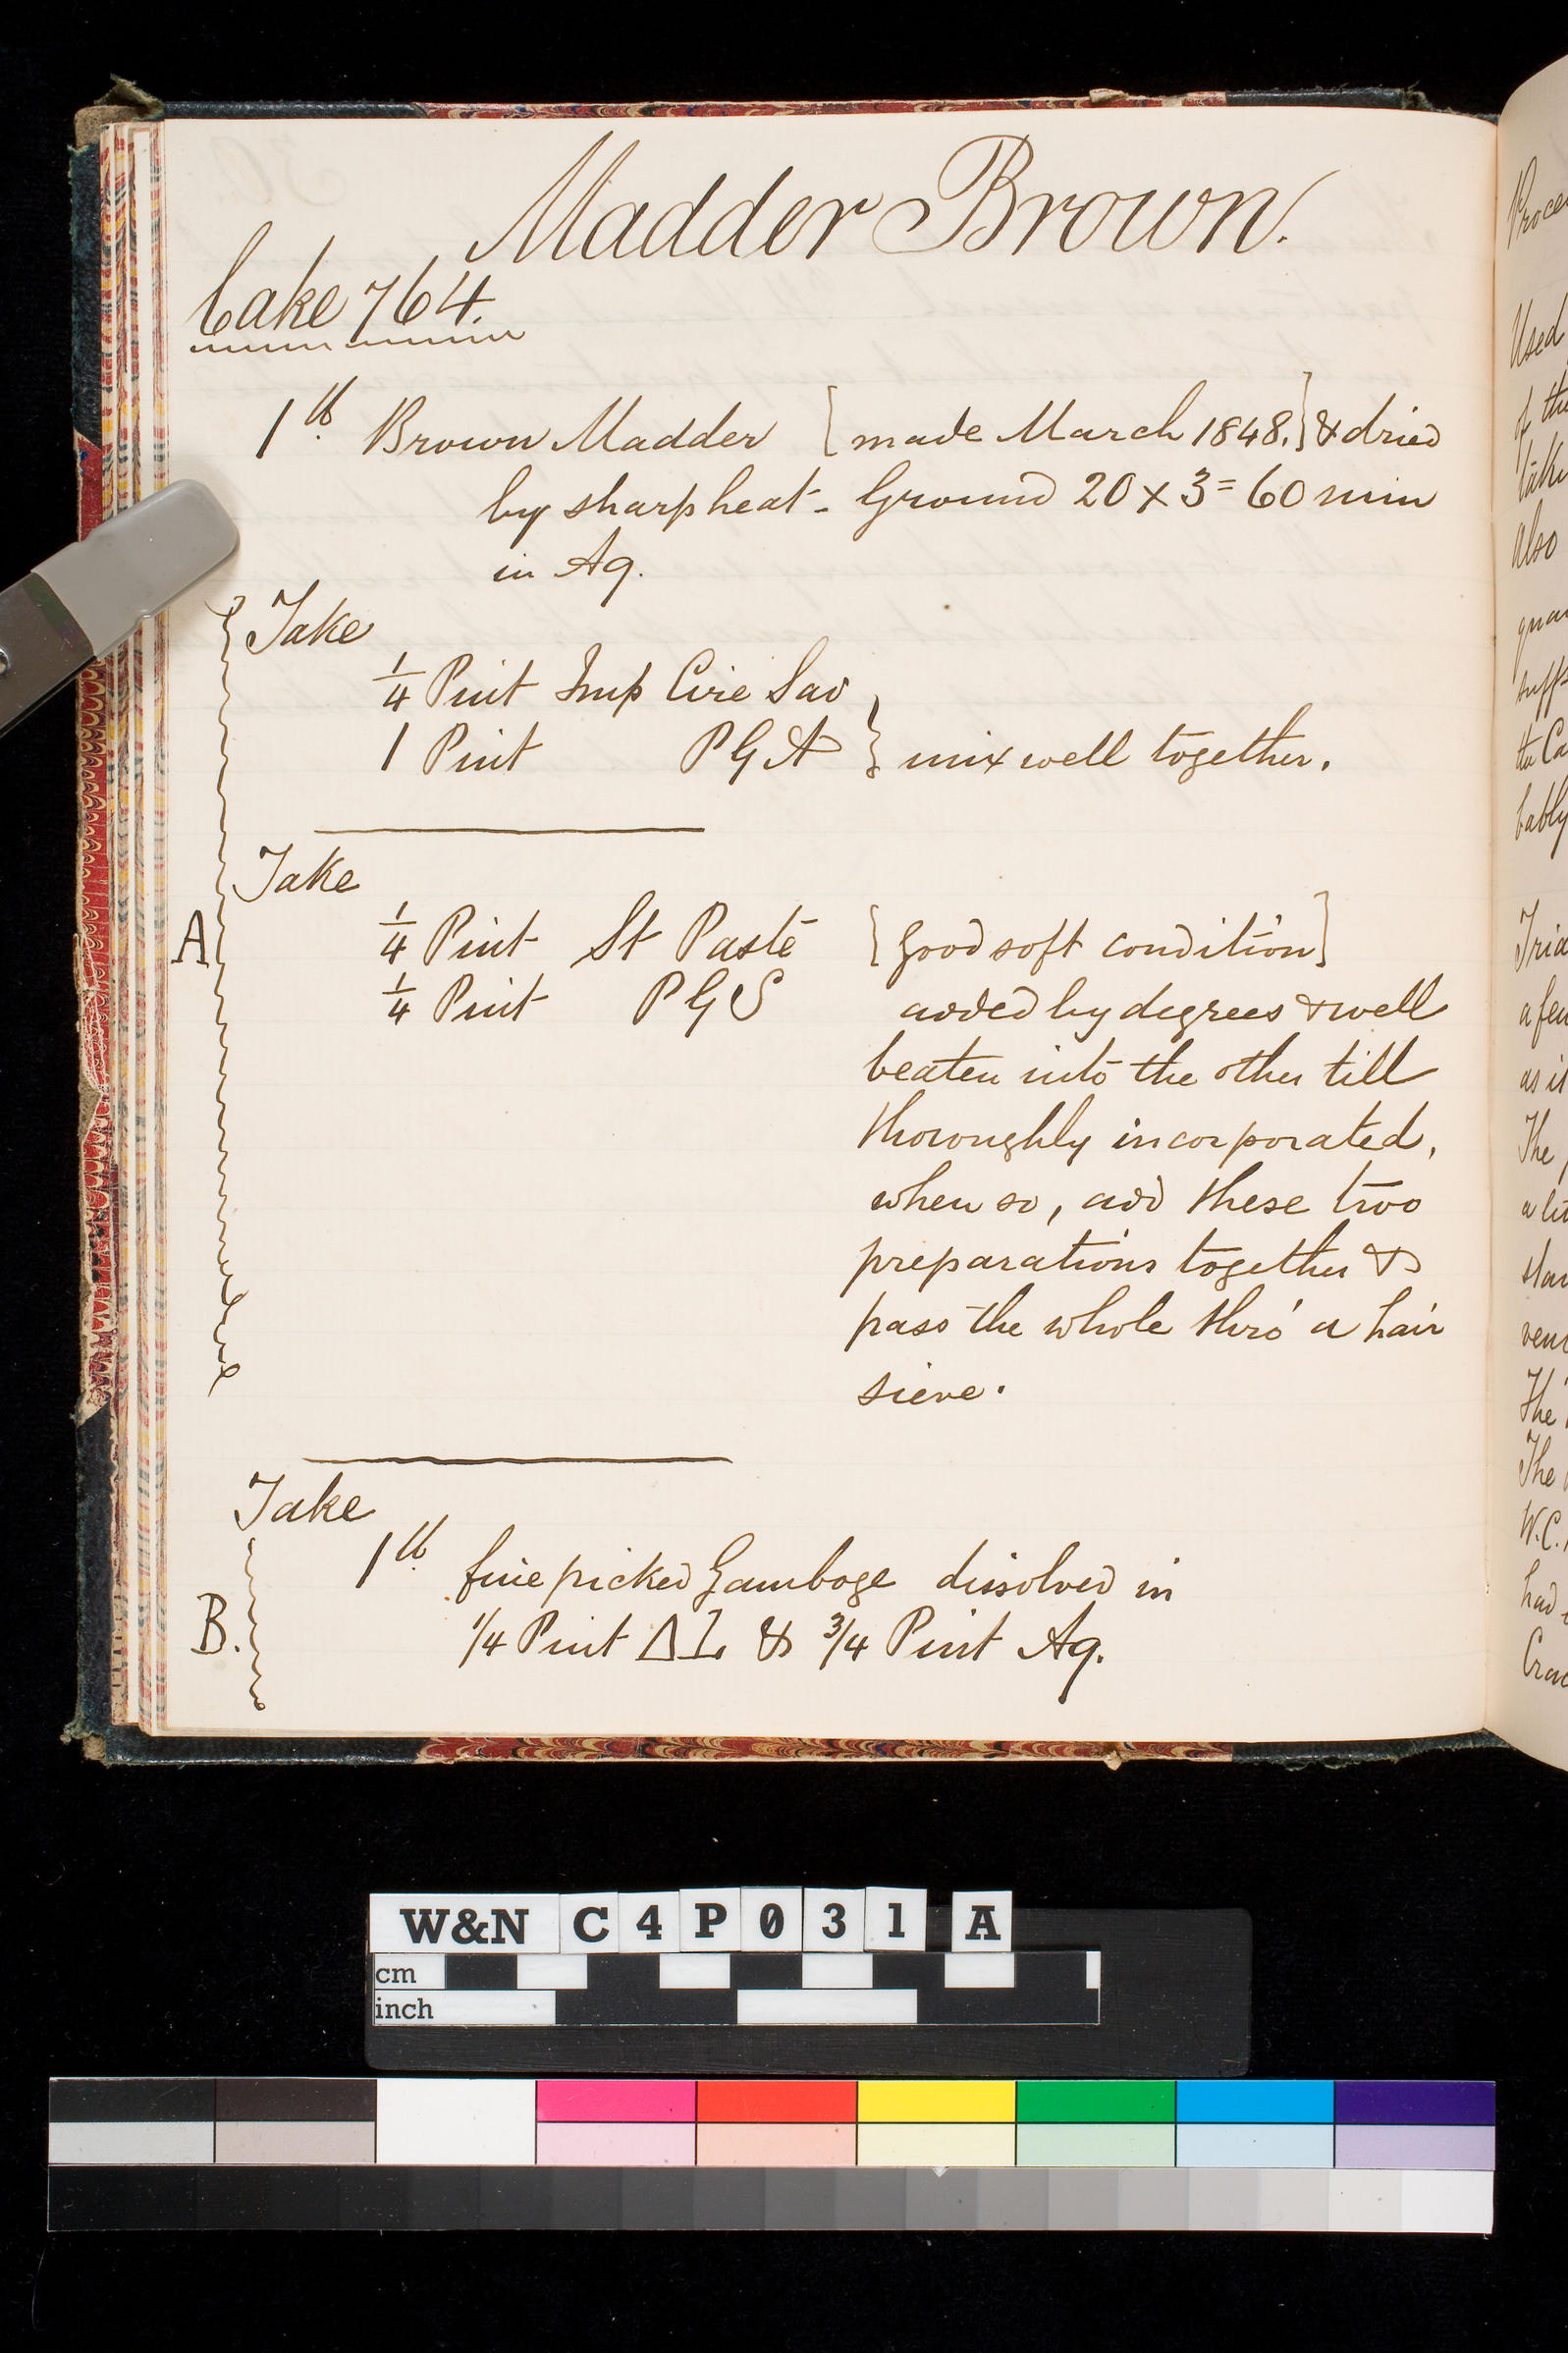 Madder Brown.
Cake 764.
1 lb. Brown Madder [made March 1848.] & dried
by sharp heat - Ground 20 x 3 = 60 min
in Aq.
Take
1/4 Pint Imp Cire Sav
1 Pint P G A } mix well together.
Take
A
1/4 Pint St Paste [good soft condition]
1/4 Pint P G S added by degrees & well
beaten into the other till
thoroughly incorporated,
when so, add these two
preparations together &
pass the whole thro' a hair
sieve.
Take
1 lb. fine picked Gamboge dissolved in
B. 1/4 Pint Δ L & 3/4 Pint Aq.
Used
of the
also
to Ca
bably
a few
as it
The
a lit
The
The
W.C.
had
W&N C4P031 A
cm
inch